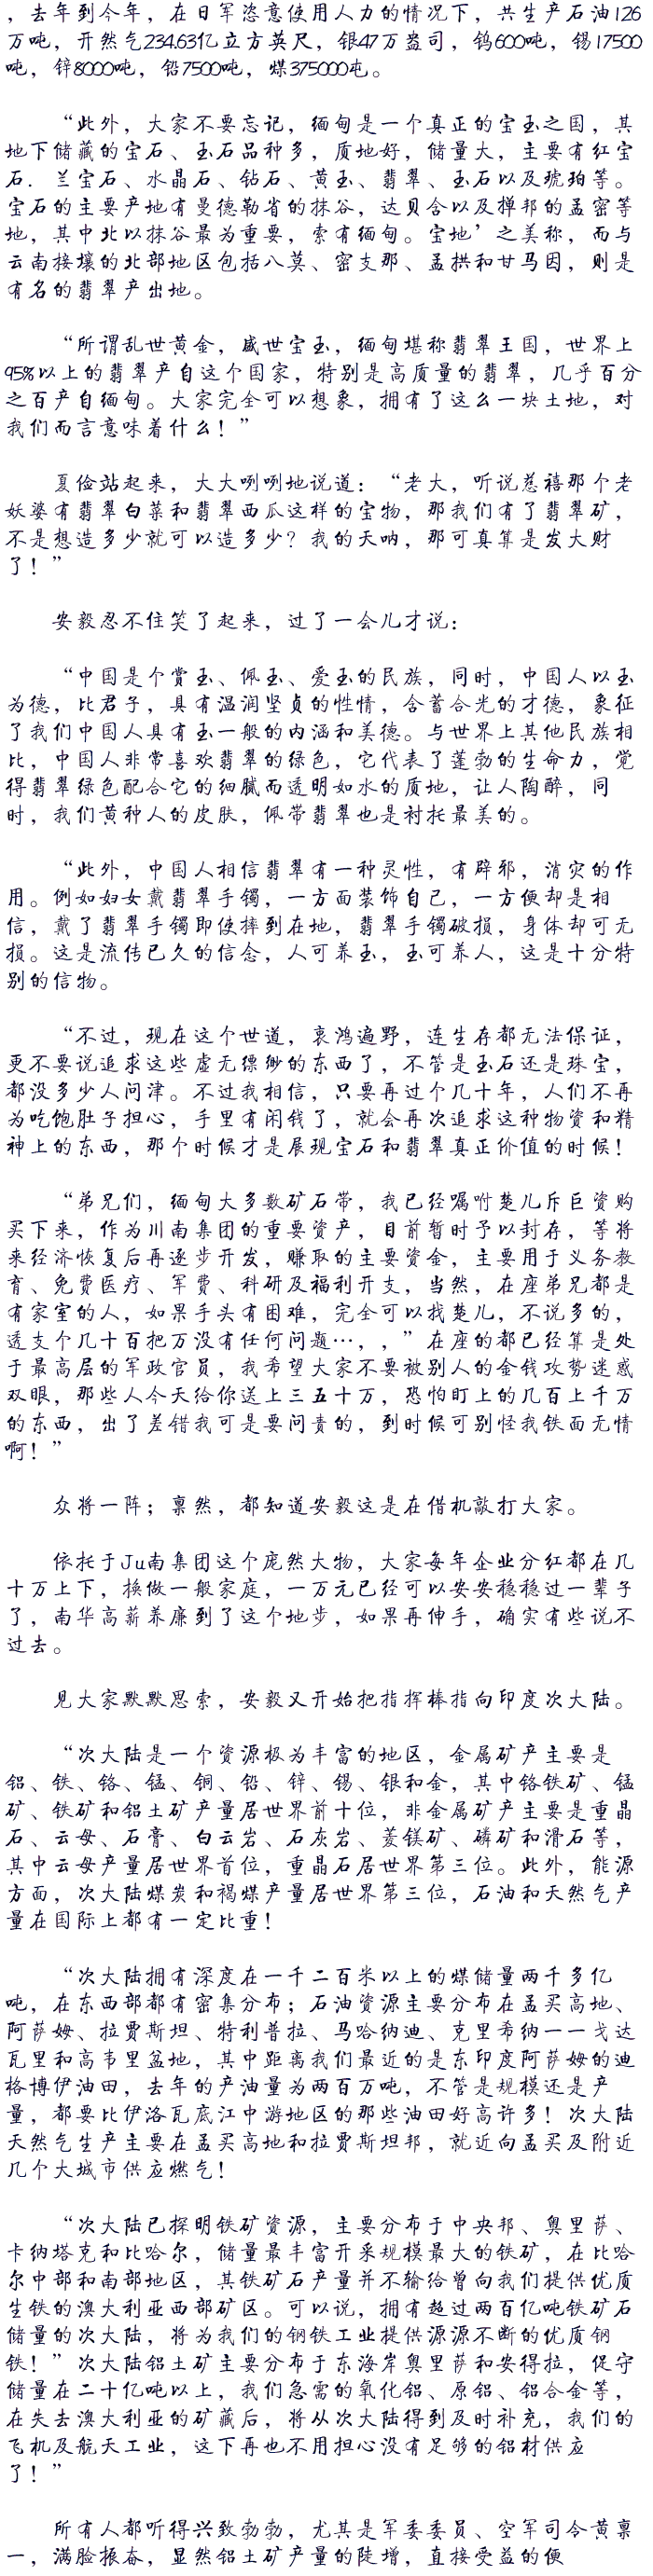 ，去年到今年，在日军恣意使用人力的情况下，共生产石油126
万吨，开然气234.63亿立方英尺，银47万盎司，钨600吨，锡17500
吨，锌8000吨，铅7500吨，煤375000屯。
“此外，大家不要忘记，缅甸是一个真正的宝玉之国，其
地下储藏的宝石、玉石品种多，质地好，储量大，主要有红宝
石．兰宝石、水晶石、钻石、黄玉、翡翠、玉石以及琥珀等。
宝石的主要产地有曼德勒省的抹谷，达贝含以及掸邦的孟密等
地，其中北以抹谷最为重要，索有缅甸。宝地’之美称，而与
云南接壤的北部地区包括八莫、密支那、孟拱和甘马因，则是
有名的翡翠产出地。
“所谓乱世黄金，盛世宝玉，缅甸堪称翡翠王国，世界上
95%以上的翡翠产自这个国家，特别是高质量的翡翠，几乎百分
之百产自缅甸。大家完全可以想象，拥有了这么一块土地，对
我们而言意味着什么！”
夏俭站起来，大大咧咧地说道：“老大，听说慈禧那个老
妖婆有翡翠白菜和翡翠西瓜这样的宝物，那我们有了翡翠矿，
不是想造多少就可以造多少？我的天呐，那可真算是发大财
了！”
安毅忍不住笑了起来，过了一会儿才说：
“中国是个赏玉、佩玉、爱玉的民族，同时，中国人以玉
为德，比君子，具有温润坚贞的性情，含蓄合光的才德，象征
了我们中国人具有玉一般的内涵和美德。与世界上其他民族相
比，中国人非常喜欢翡翠的绿色，它代表了蓬勃的生命力，觉
得翡翠绿色配合它的细腻而透明如水的质地，让人陶醉，同
时，我们黄种人的皮肤，佩带翡翠也是衬托最美的。
“此外，中国人相信翡翠有一种灵性，有辟邪，消灾的作
用。例如妇女戴翡翠手镯，一方面装饰自己，一方便却是相
信，戴了翡翠手镯即使摔到在地，翡翠手镯破损，身体却可无
损。这是流传已久的信念，人可养玉，玉可养人，这是十分特
别的信物。
“不过，现在这个世道，哀鸿遍野，连生存都无法保证，
更不要说追求这些虚无缥缈的东西了，不管是玉石还是珠宝，
都没多少人问津。不过我相信，只要再过个几十年，人们不再
为吃饱肚子担心，手里有闲钱了，就会再次追求这种物资和精
神上的东西，那个时候才是展现宝石和翡翠真正价值的时候！
“弟兄们，缅甸大多数矿石带，我已经嘱咐楚儿斥巨资购
买下来，作为川南集团的重要资产，目前暂时予以封存，等将
来经济恢复后再逐步开发，赚取的主要资金，主要用于义务教
育、免费医疗、军费、科研及福利开支，当然，在座弟兄都是
有家室的人，如果手头有困难，完全可以找楚儿，不说多的，
透支个几十百把万没有任何问题…，，”在座的都已经算是处
于最高层的军政官员，我希望大家不要被别人的金钱攻势迷惑
双眼，那些人今天给你送上三五十万，恐怕盯上的几百上千万
的东西，出了差错我可是要问责的，到时候可别怪我铁面无情
啊！”
众将一阵；禀然，都知道安毅这是在借机敲打大家。
依托于Ju南集团这个庞然大物，大家每年企业分红都在几
十万上下，换做一般家庭，一万元已经可以安安稳稳过一辈子
了，南华高薪养廉到了这个地步，如果再伸手，确实有些说不
过去。
见大家默默思索，安毅又开始把指挥棒指向印度次大陆。
“次大陆是一个资源极为丰富的地区，金属矿产主要是
铝、铁、铬、锰、铜、铅、锌、锡、银和金，其中铬铁矿、锰
矿、铁矿和铝土矿产量居世界前十位，非金属矿产主要是重晶
石、云母、石膏、白云岩、石灰岩、菱镁矿、磷矿和滑石等，
其中云母产量居世界首位，重晶石居世界第三位。此外，能源
方面，次大陆煤炭和褐煤产量居世界第三位，石油和天然气产
量在国际上都有一定比重！
“次大陆拥有深度在一千二百米以上的煤储量两千多亿
吨，在东西部都有密集分布；石油资源主要分布在孟买高地、
阿萨姆、拉贾斯坦、特利普拉、马哈纳迪、克里希纳一一戈达
瓦里和高韦里盆地，其中距离我们最近的是东印度阿萨姆的迪
格博伊油田，去年的产油量为两百万吨，不管是规模还是产
量，都要比伊洛瓦底江中游地区的那些油田好高许多！次大陆
天然气生产主要在孟买高地和拉贾斯坦邦，就近向孟买及附近
几个大城市供应燃气！
“次大陆已探明铁矿资源，主要分布于中央邦、奥里萨、
卡纳塔克和比哈尔，储量最丰富开采规模最大的铁矿，在比哈
尔中部和南部地区，其铁矿石产量并不输给曾向我们提供优质
生铁的澳大利亚西部矿区。可以说，拥有超过两百亿吨铁矿石
储量的次大陆，将为我们的钢铁工业提供源源不断的优质钢
铁！”次大陆铝土矿主要分布于东海岸奥里萨和安得拉，促守
储量在二十亿吨以上，我们急需的氧化铝、原铝、铝合金等，
在失去澳大利亚的矿藏后，将从次大陆得到及时补充，我们的
飞机及航天工业，这下再也不用担心没有足够的铝材供应
了！”
所有人都听得兴致勃勃，尤其是军委委员、空军司令黄禀
一，满脸振奋，显然铝土矿产量的陡增，直接受益的便